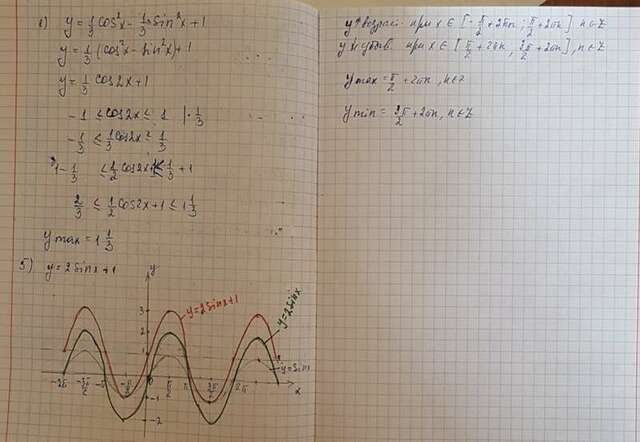 в) y = 1/3 cos²x - 1/3 sin²x + 1
y = 1/3 (cos²x - sin²x) + 1
y = 1/3 cos2x + 1
-1 ≤ cos2x ≤ 1 | · 1/3
-1/3 ≤ 1/3 cos2x ≤ 1/3
1 - 1/3 ≤ 1/2 cos2x + 1 ≤ 1/3 + 1
2/3 ≤ 1/2 cos2x + 1 ≤ 1 1/3
y max = 1 1/3
5) y = 2 sin x + 1
y
y = 2 sin x + 1
y = 2 sin x
y = sin x
3
2
1
-2π -3π/2 -π -π/2 0 π/2 π 3π/2 2π x
-1
-2
y возраст. при x ∈ [-π/2 + 2πn ; π/2 + 2πn] n ∈ Z
y убыв. при x ∈ [π/2 + 2πn, 3π/2 + 2πn], n ∈ Z
y max = π/2 + 2πn, n ∈ Z
y min = 3π/2 + 2πn, n ∈ Z